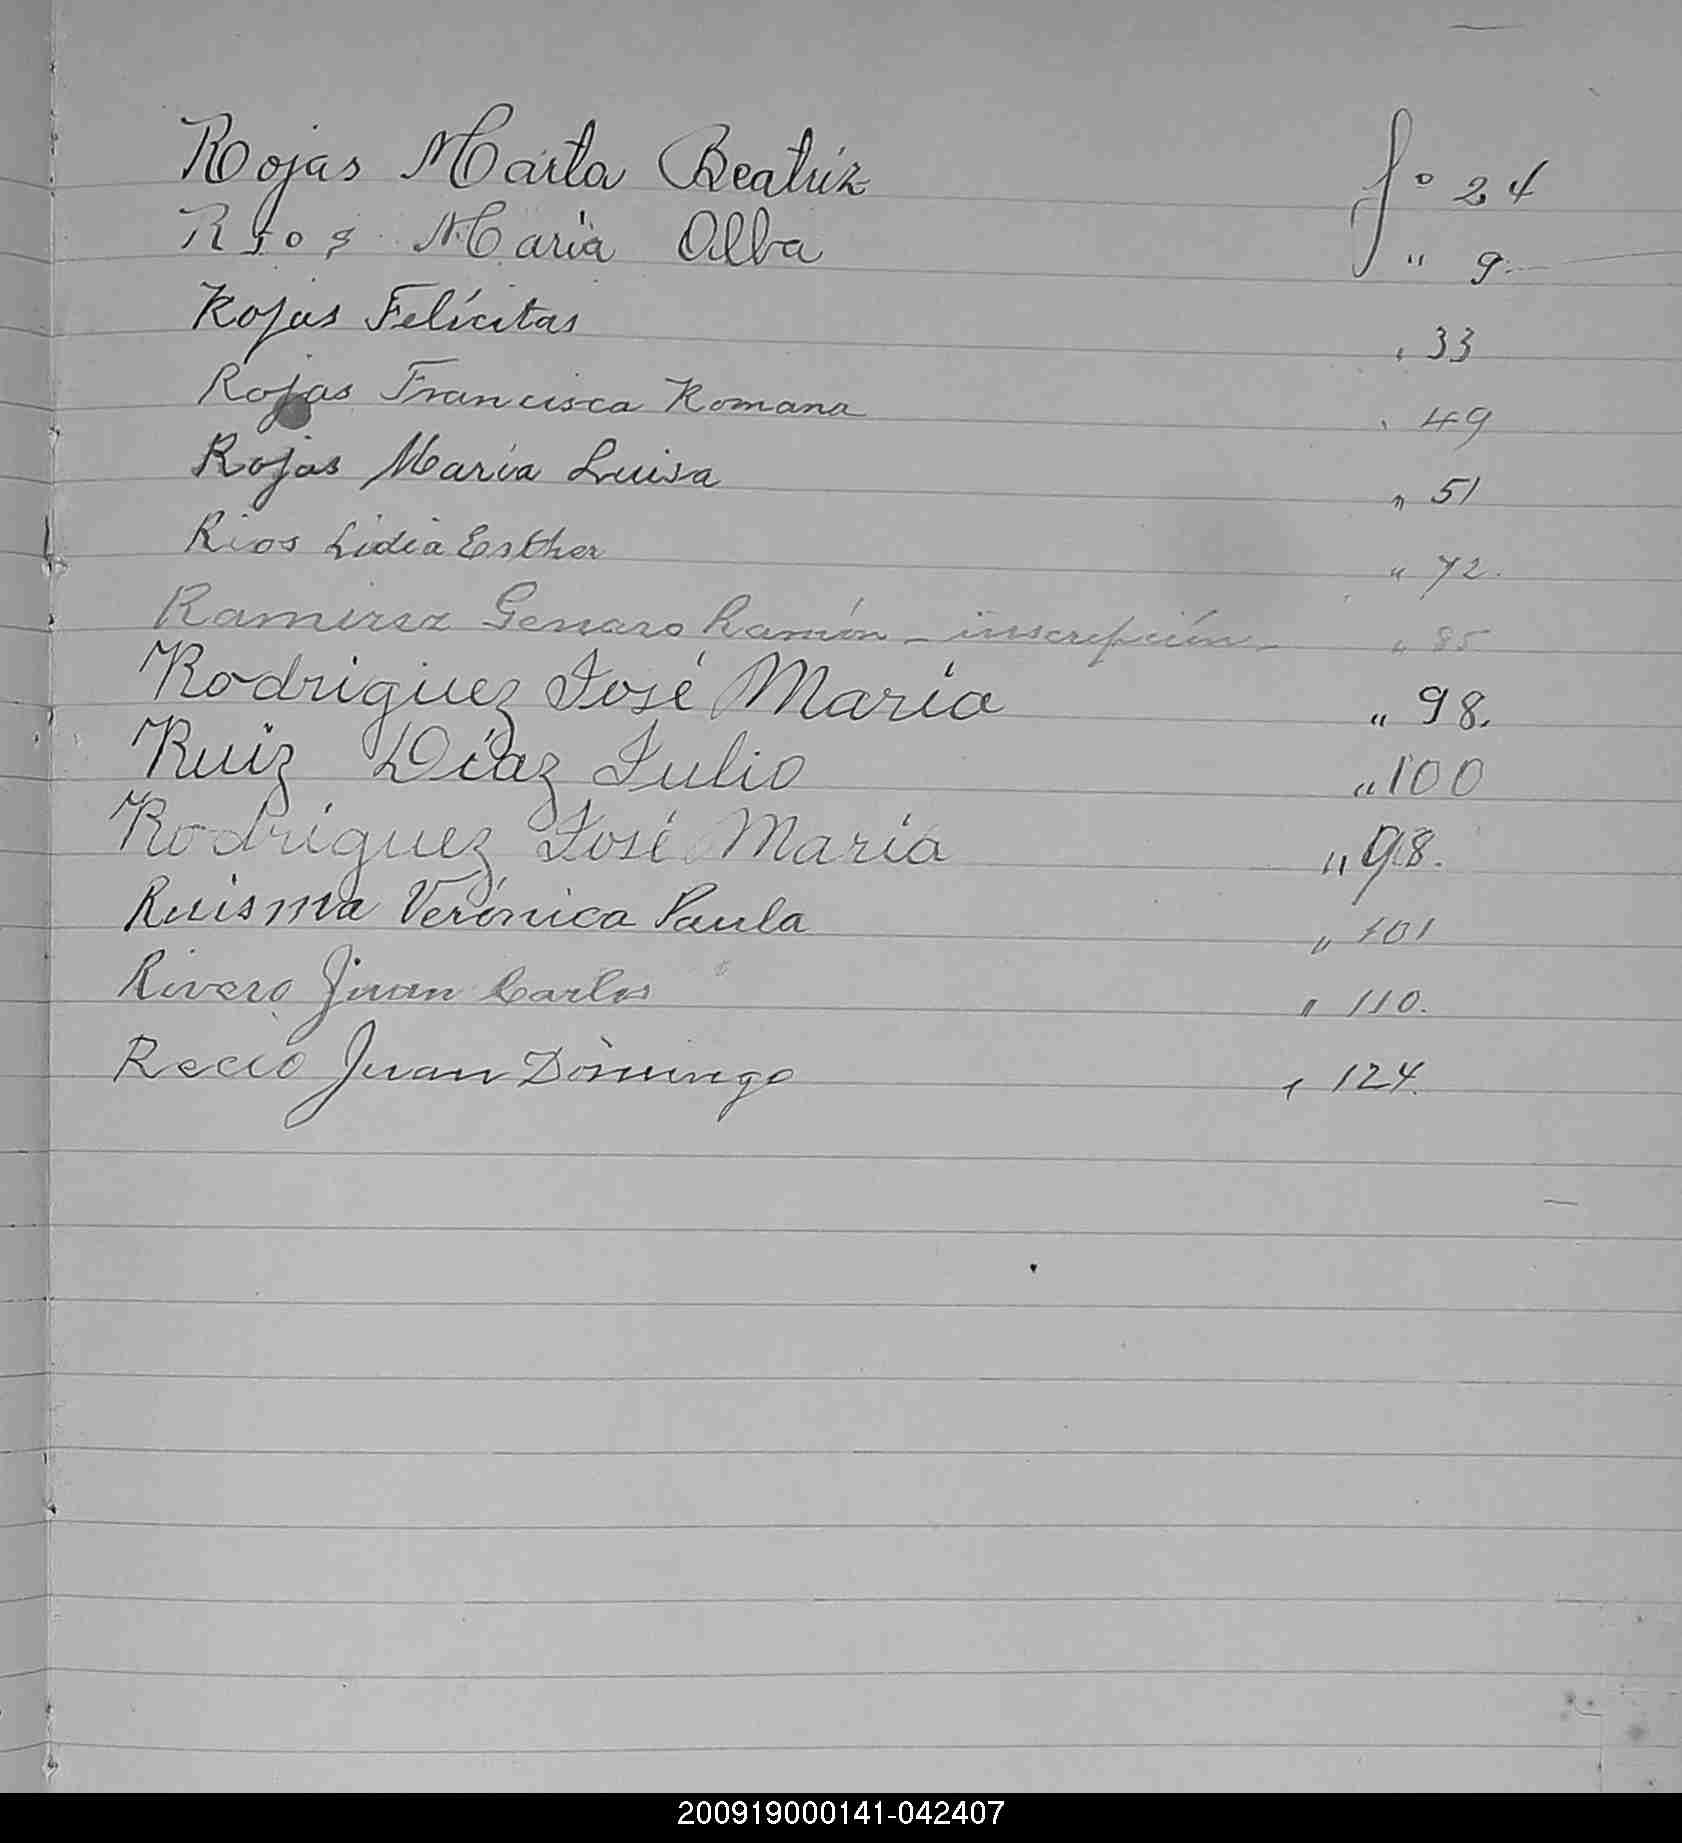 Rojas Marta Beatriz fº 24
Rios María Alba " 9.
Rojas Felícitas " 33
Rojas Francisca Romana " 49
Rojas María Luisa " 51
Rios Lidia Esther " 72.
Ramirez Genaro Ramón - inscripción - " 85
Rodriguez José María " 98.
Ruiz Díaz Julio " 100
Rodríguez José María " 98.
Ruisma Verónica Paula " 101
Rivero Juan Carlos " 110.
Recio Juan Domingo " 124.
200919000141-042407